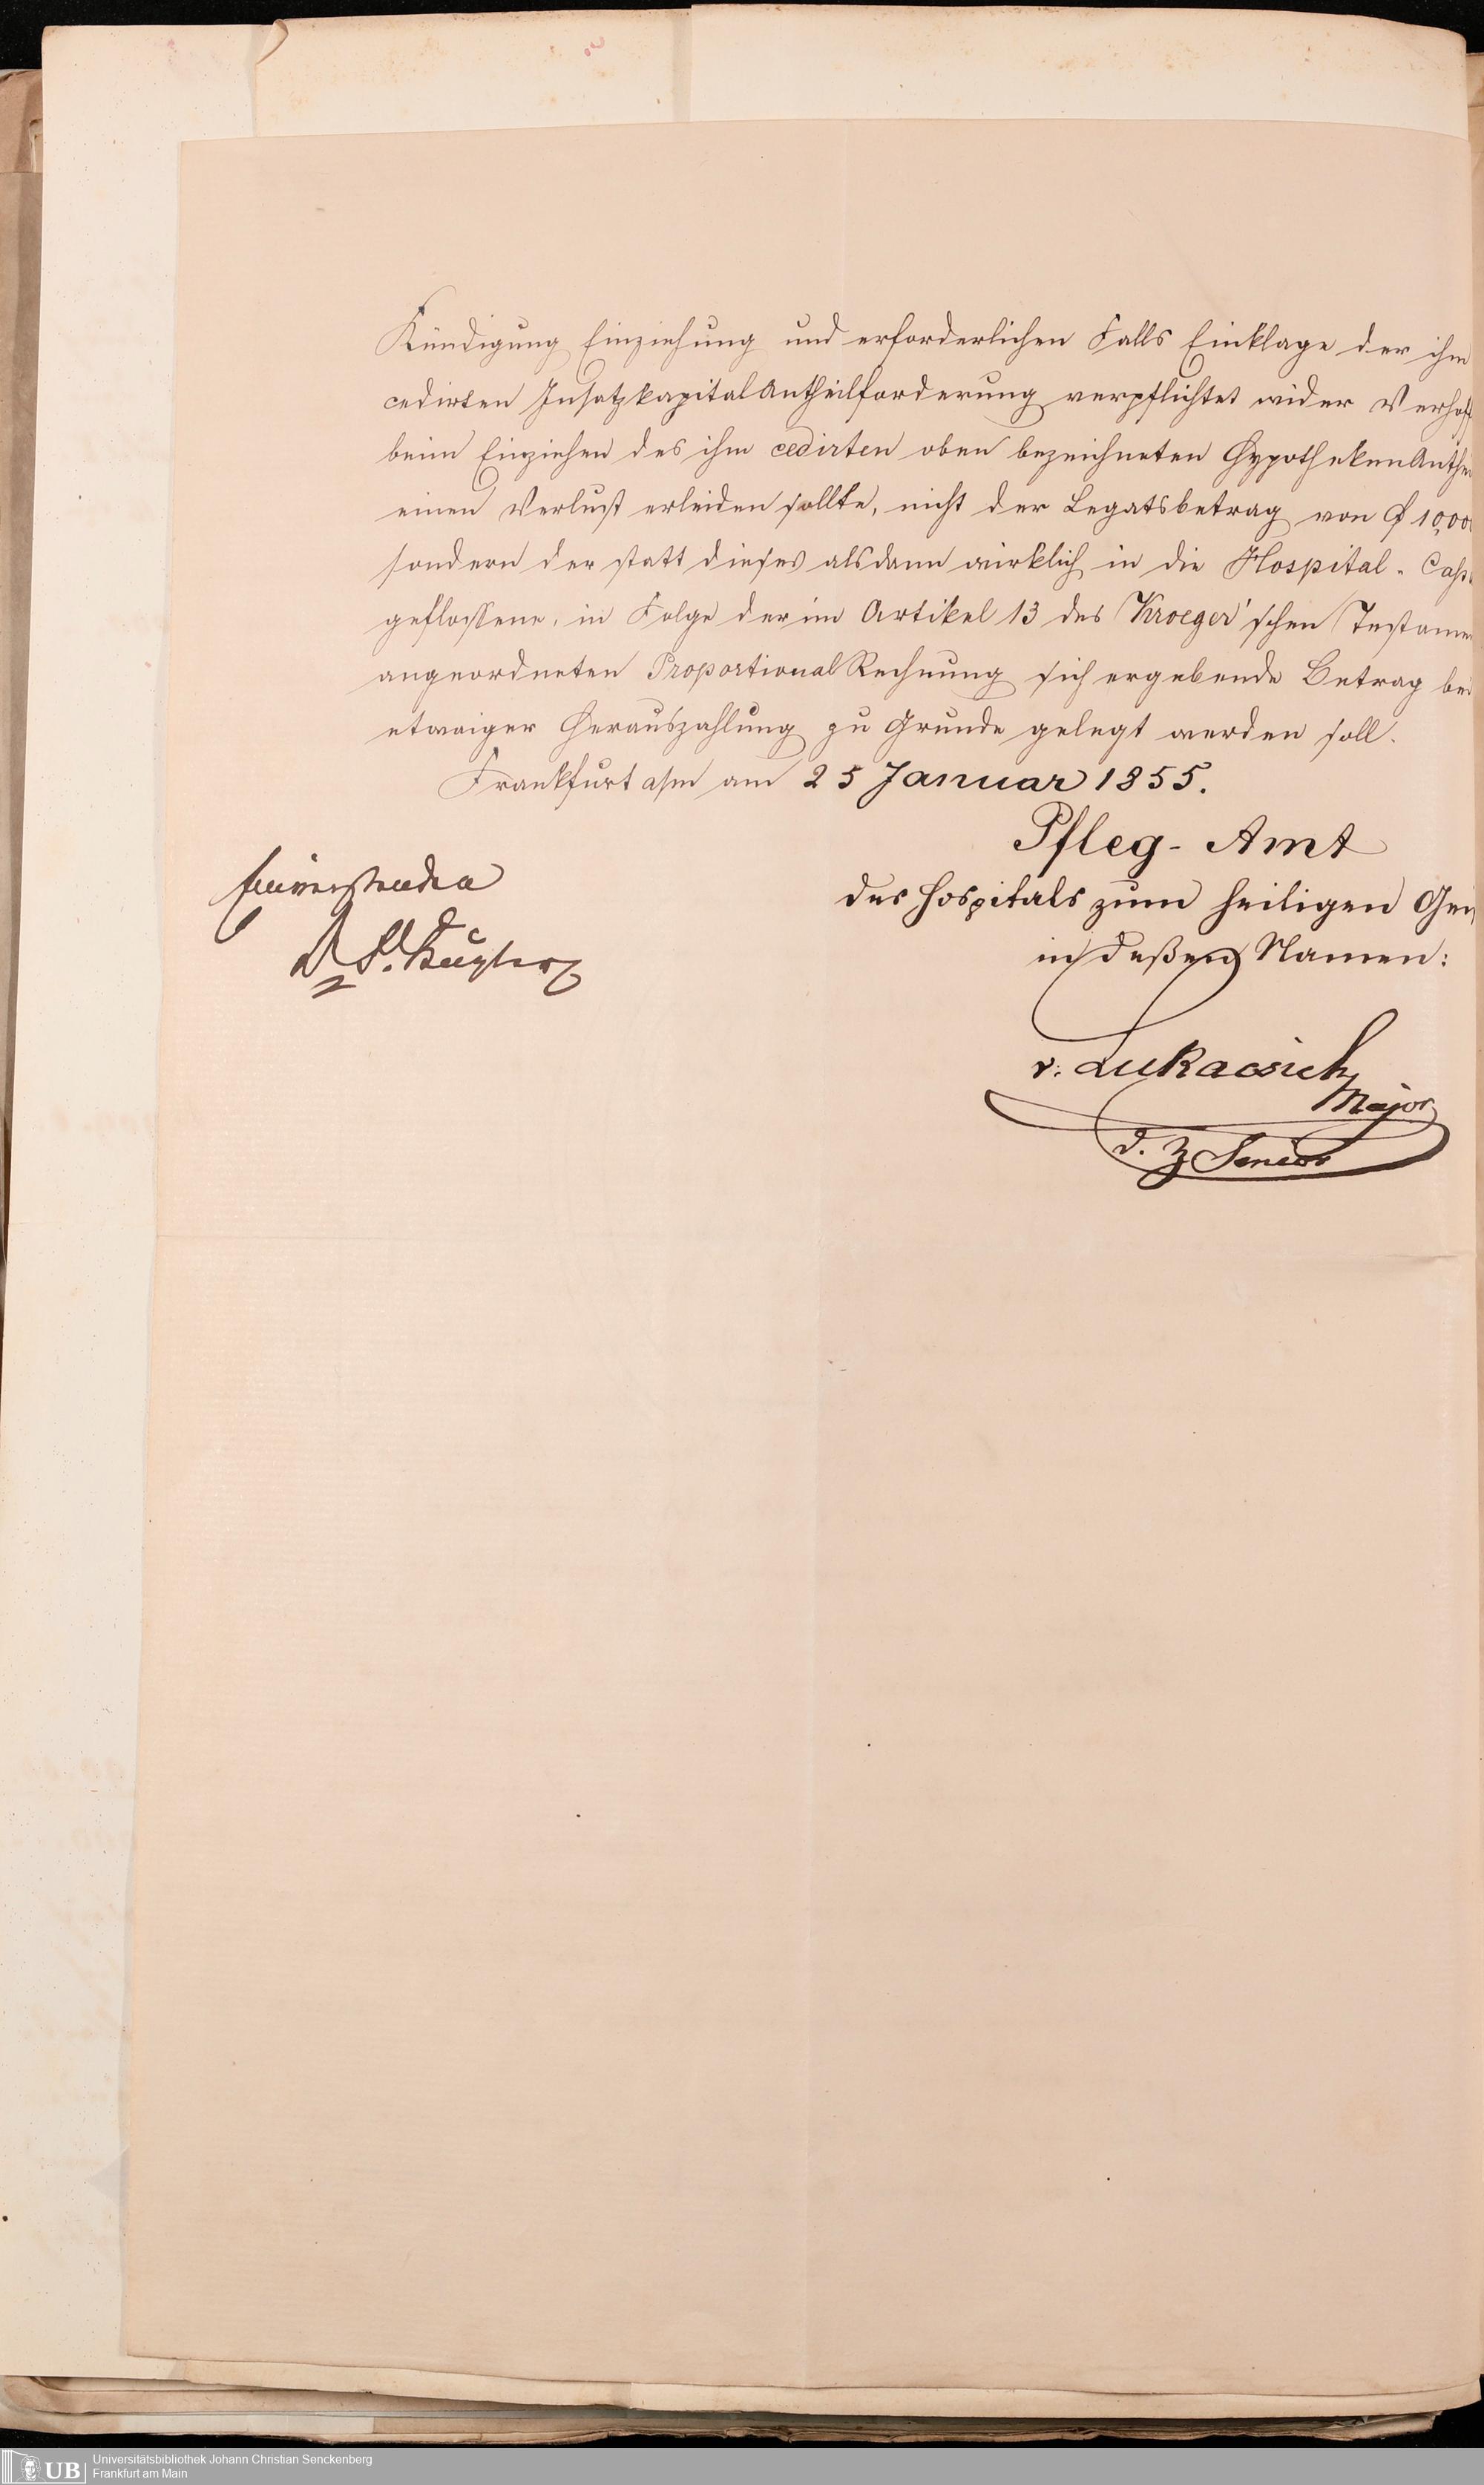 Kündigung Einziehung und erforderlichen Falls Einklage der ihm
cedirten InsatzkapitalAntheilforderung verpflichtet wider Verhof
beim Einziehen des ihm cedirten oben bezeichneten HypothekenAnthei
einen Verlust erleiden sollte, nicht der Legatsbetrag von f 10,000
sondern der statt dieses alsdann wirklich in die Hospital-Cass
geflossene, in Folge der im Artikel 13 des Kroeger'schen Testamen
angeordneten ProportionalRechnung sich ergebende Betrag bei
etwaiger Herauszahlung zu Grunde gelegt werden soll.
Frankfurt a/m am 25 Januar 1855.
Pfleg-Amt
des Hospitals zum heiligen Gei
in deßen Namen:
v. Lukacsich
Major
d. Z Senior
Einverstanden
Universitätsbibliothek Johann Christian Senckenberg
Frankfurt am Main
UB